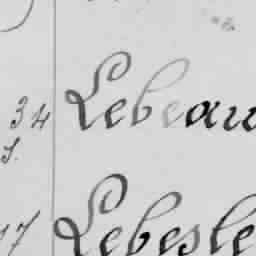 34 Lebeau
17 Lebesle